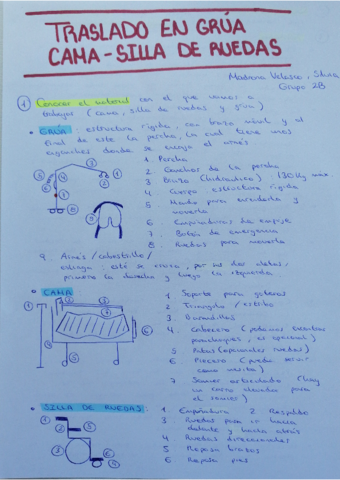 TRASLADO EN GRÚA
CAMA - SILLA DE RUEDAS
Madrona Velasco, Silvia
Grupo 2B
① Conocer el material con el que vamos a
trabajar (cama, silla de ruedas y grúa)
• GRÚA: estructura rígida, con brazo móvil y al
final de este la percha, la cual tiene unos
donde se engancha el arnés
1. Percha
2. Ganchos de la percha
3. Brazo (hidráulico) 130 Kg max.
4. Cuerpo: estructura rígida
5. Mando para encenderla y
moverla
6. Empuñaduras de empuje
7. Botón de emergencia
8. Ruedas para moverla
9. Arnés / cabestrillo /
eslinga: este se cruza, por sus dos aletas,
primero la derecha y luego la izquierda.
• CAMA:
1 Soporte para goteros
2 Triangulo / estribo
3 Barandillas
4. cabecero (podemos
, es opcional)
5 Patas (opcionales ruedas)
6 Piecero (puede servir
como mesita)
7 Somier articulado (hay
un mando elevador para
el somier)
• SILLA DE RUEDAS:
1. Empuñadura 2 Respaldo
3 Ruedas para ir hacia
delante y hacia atrás
4 Ruedas direccionales
5 Reposa brazos
6 Reposa pies